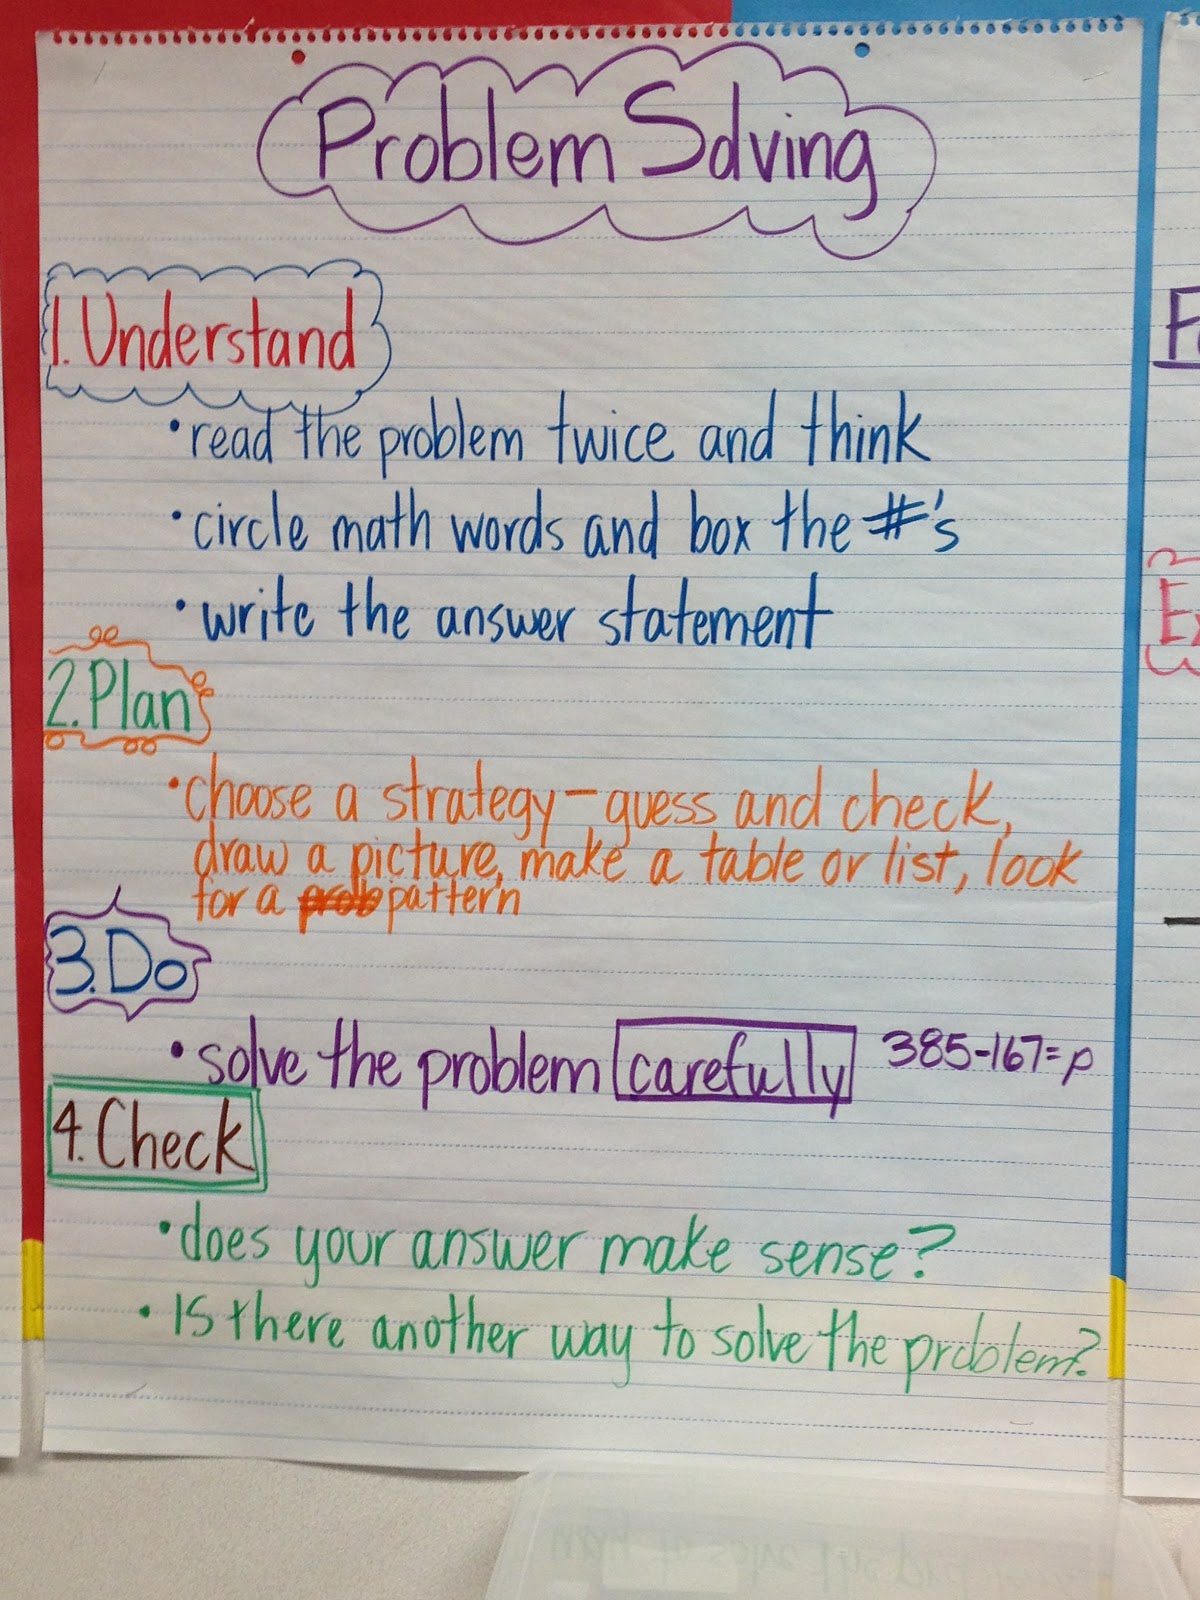 Problem Solving
1. Understand
• read the problem twice and think
• circle math words and box the #'s
• write the answer statement
2. Plan
• choose a strategy - guess and check,
draw a picture, make a table or list, look
for a prob pattern
3. Do
• solve the problem carefully 385-167=p
4. Check
• does your answer make sense?
• Is there another way to solve the problem?